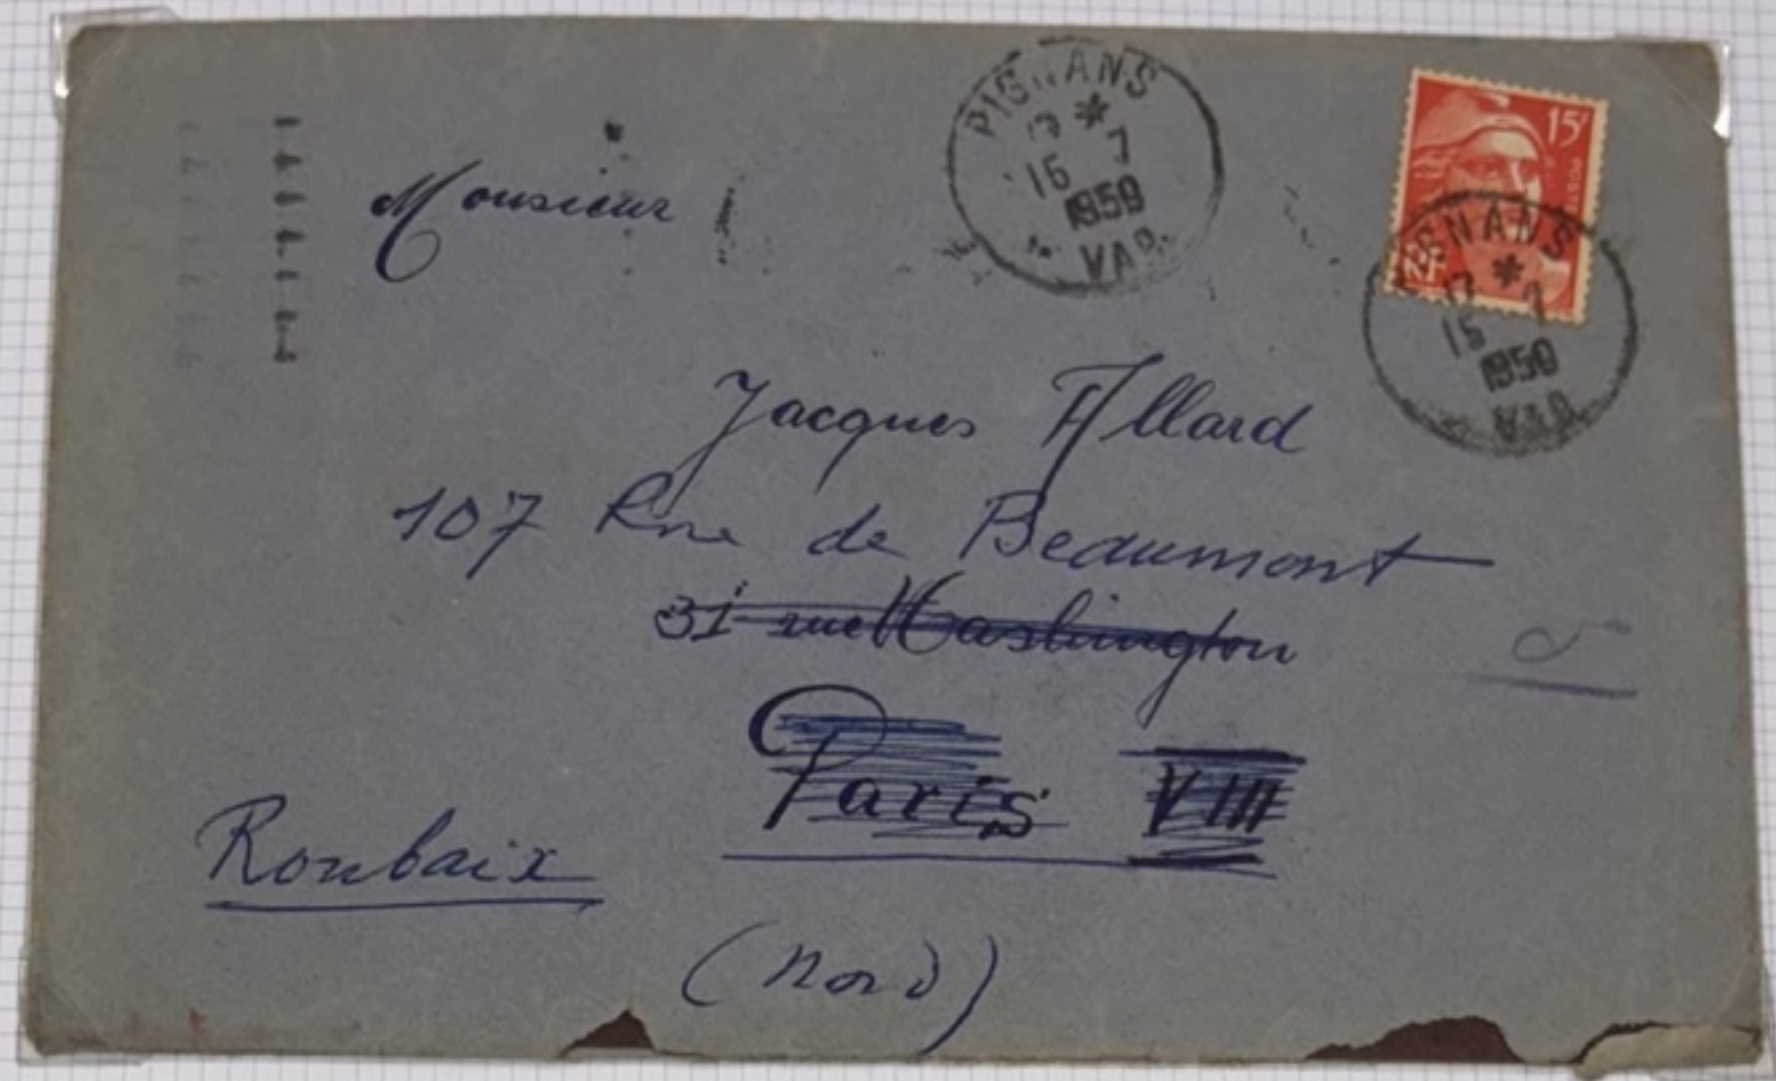 PIGNANS
* 
15 7
1950
VAR
15F
POSTES
RF
PIGNANS
*
15 7
1950
VAR
Monsieur
Jacques Allard
107 Rue de Beaumont
31 rue Washington
Paris VIII
Roubaix
(Nord)